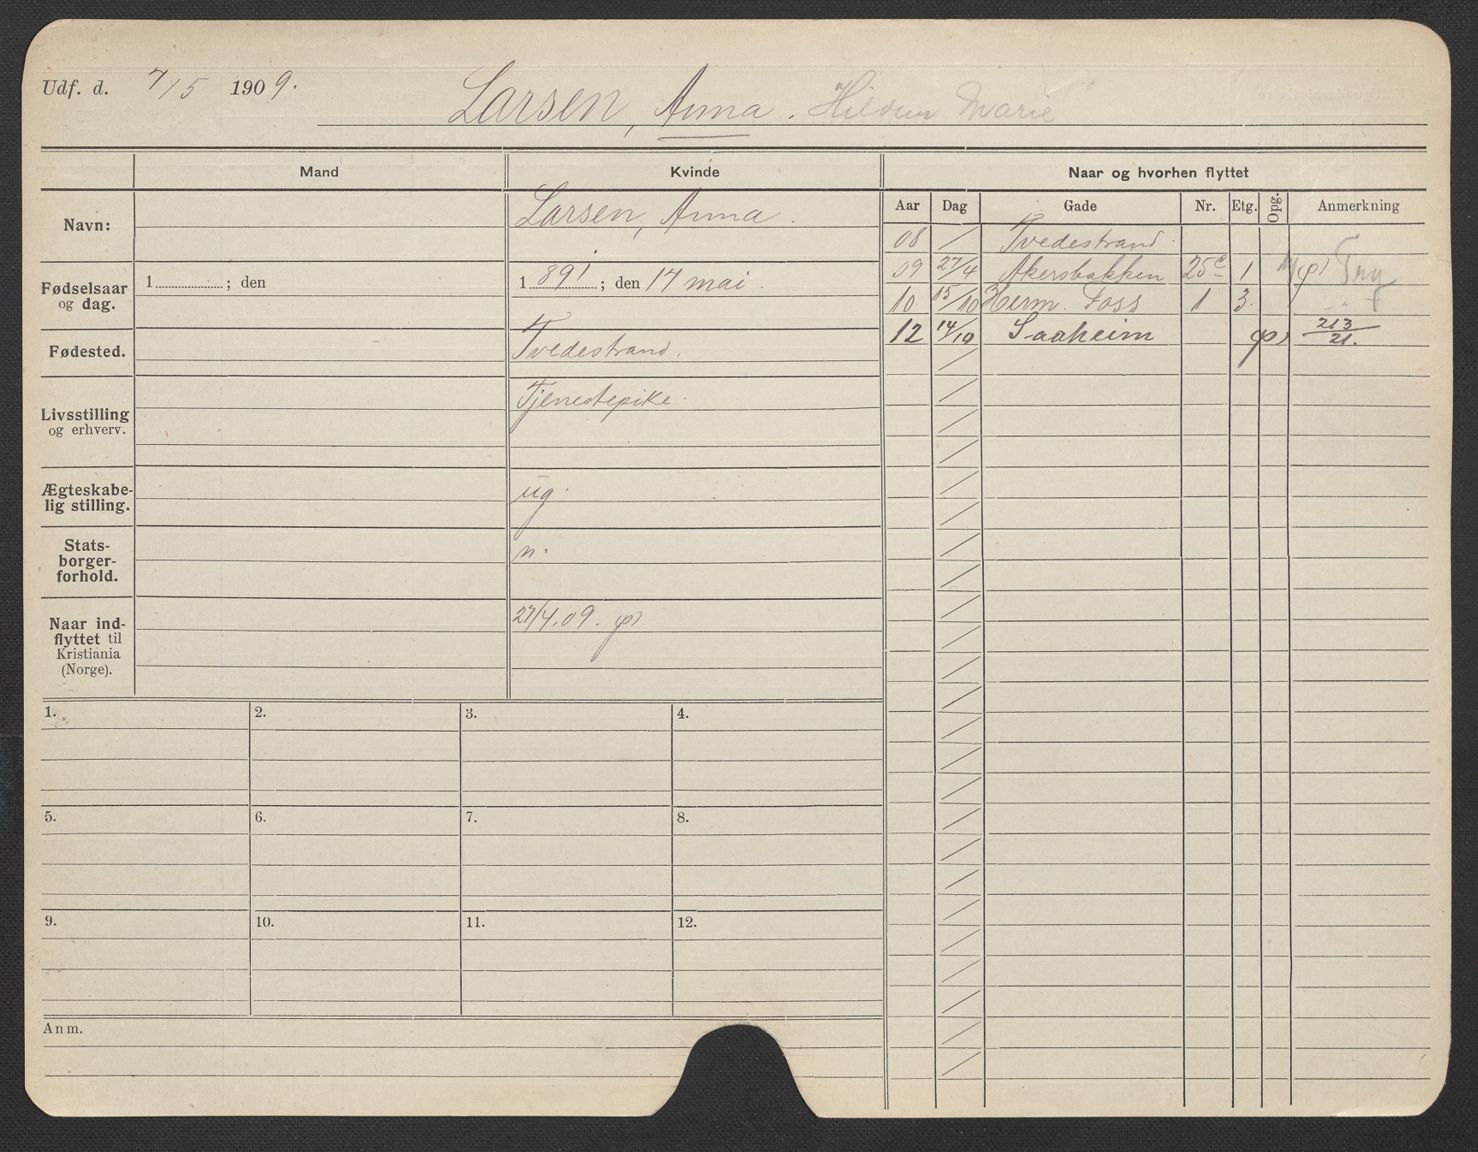 Udf. d. 7/5 1909.
Larsen, Anna. Marie
Mand
Kvinde
Naar og hvorhen flyttet
Navn:
Larsen, Anna.
Aar Dag Gade Nr. Etg. Opg. Anmerkning
08 / Tvedestrand.
09 27/4 Akersbakken 25c 1
10 15/10 Herm. Foss 1 3.
12 14/10 Saaheim 213/21.
Fødselsaar
og dag.
1 ; den
1891 ; den 17 mai.
Fødested.
Tvedestrand.
Livsstilling
og erhverv.
Tjenestepike.
Ægteskabe-
lig stilling.
ug.
Stats-
borger-
forhold.
n.
Naar ind-
flyttet til
Kristiania
(Norge).
27/4.09.
1. 2. 3. 4.
5. 6. 7. 8.
9. 10. 11. 12.
Anm.